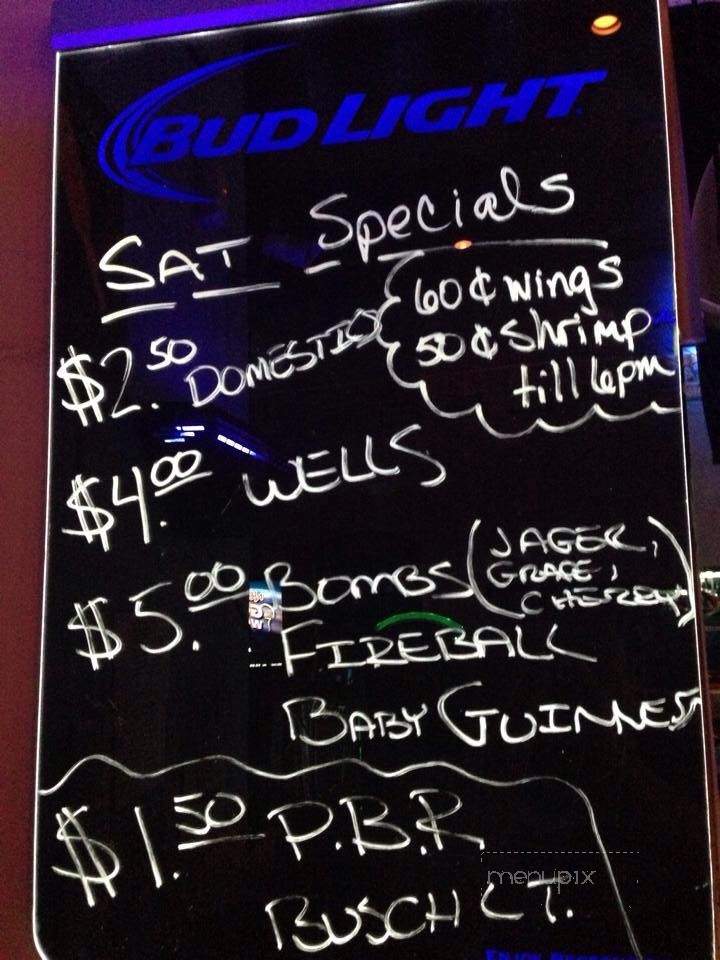 BUD LIGHT
SAT Specials
60¢ wings
50¢ shrimp
till 6pm
$2.50 DOMESTICS
$4.00 WELLS
$5.00 BOMBS (JAGER,
GRAPE,
CHERRY)
FIREBALL
BABY GUINNESS
$1.50 P.B.R.
BUSCH LT.
menupix
ENJOY